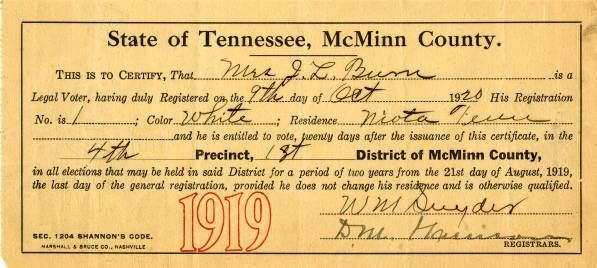 State of Tennessee, McMinn County.
THIS IS TO CERTIFY, That Mrs J. L. Burn is a
Legal Voter, having duly Registered on the 9th day of Oct 1920 His Registration
No. is 1 ; Color White ; Residence Niota Tenn
and he is entitled to vote, twenty days after the issuance of this certificate, in the
4th Precinct, 1st District of McMinn County,
in all elections that may be held in said District for a period of two years from the 21st day of August, 1919,
the last day of the general registration, provided he does not change his residence and is otherwise qualified.
1919
W M Snyder
D. M.
SEC. 1204 SHANNON'S CODE.
MARSHALL & BRUCE CO., NASHVILLE
REGISTRARS.